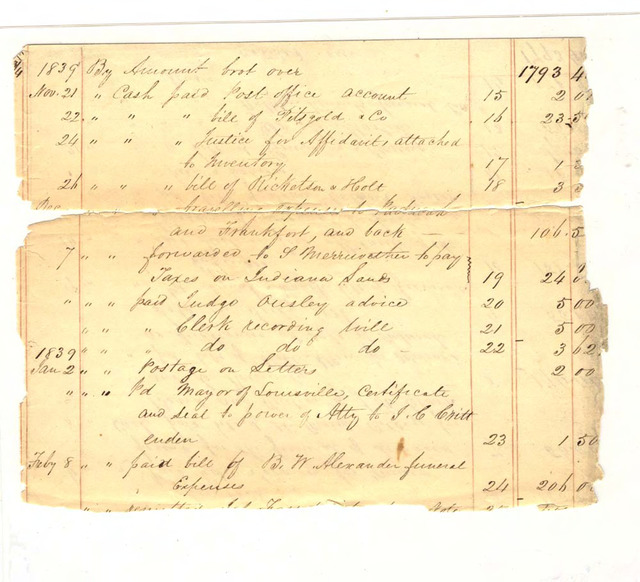 1839 By Amount brot over 1793 4
Nov. 21 " Cash paid Post office account 15 2 0
22 " " " bill of Pitsgold & Co 16 23 5
24 " " " Justice for Affidavits attached
to Inventory 17 1
26 " " " bill of Ricketson & Holt 18 3
Dec travelling expenses to
and Frankfort, and back — 106 5
7 " " forwarded to S Merriwether to pay
Taxes on Indiana Lands 19 24
" " " paid Judge Ousley advice 20 5 00
" " " Clerk recording will 21 5 00
1839 " " " do do do — 22 3 62
Jan 2 " " Postage on Letters 2 00
" " " Pd Mayor of Louisville, Certificate
and seal to power of Atty to J. C Critt
enden 23 1 50
Feby 8 " " paid bill of B. W Alexander funeral
Expenses 24 206 0